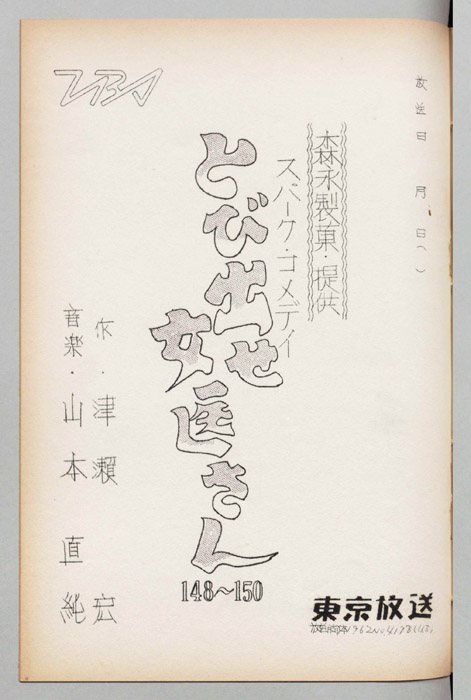 放送日　月　日（　）
森永製菓・提供
スパーク・コメディ
とび出せ
女医さん
148〜150
作・津瀬宏
音楽・山本直純
TBS
東京放送